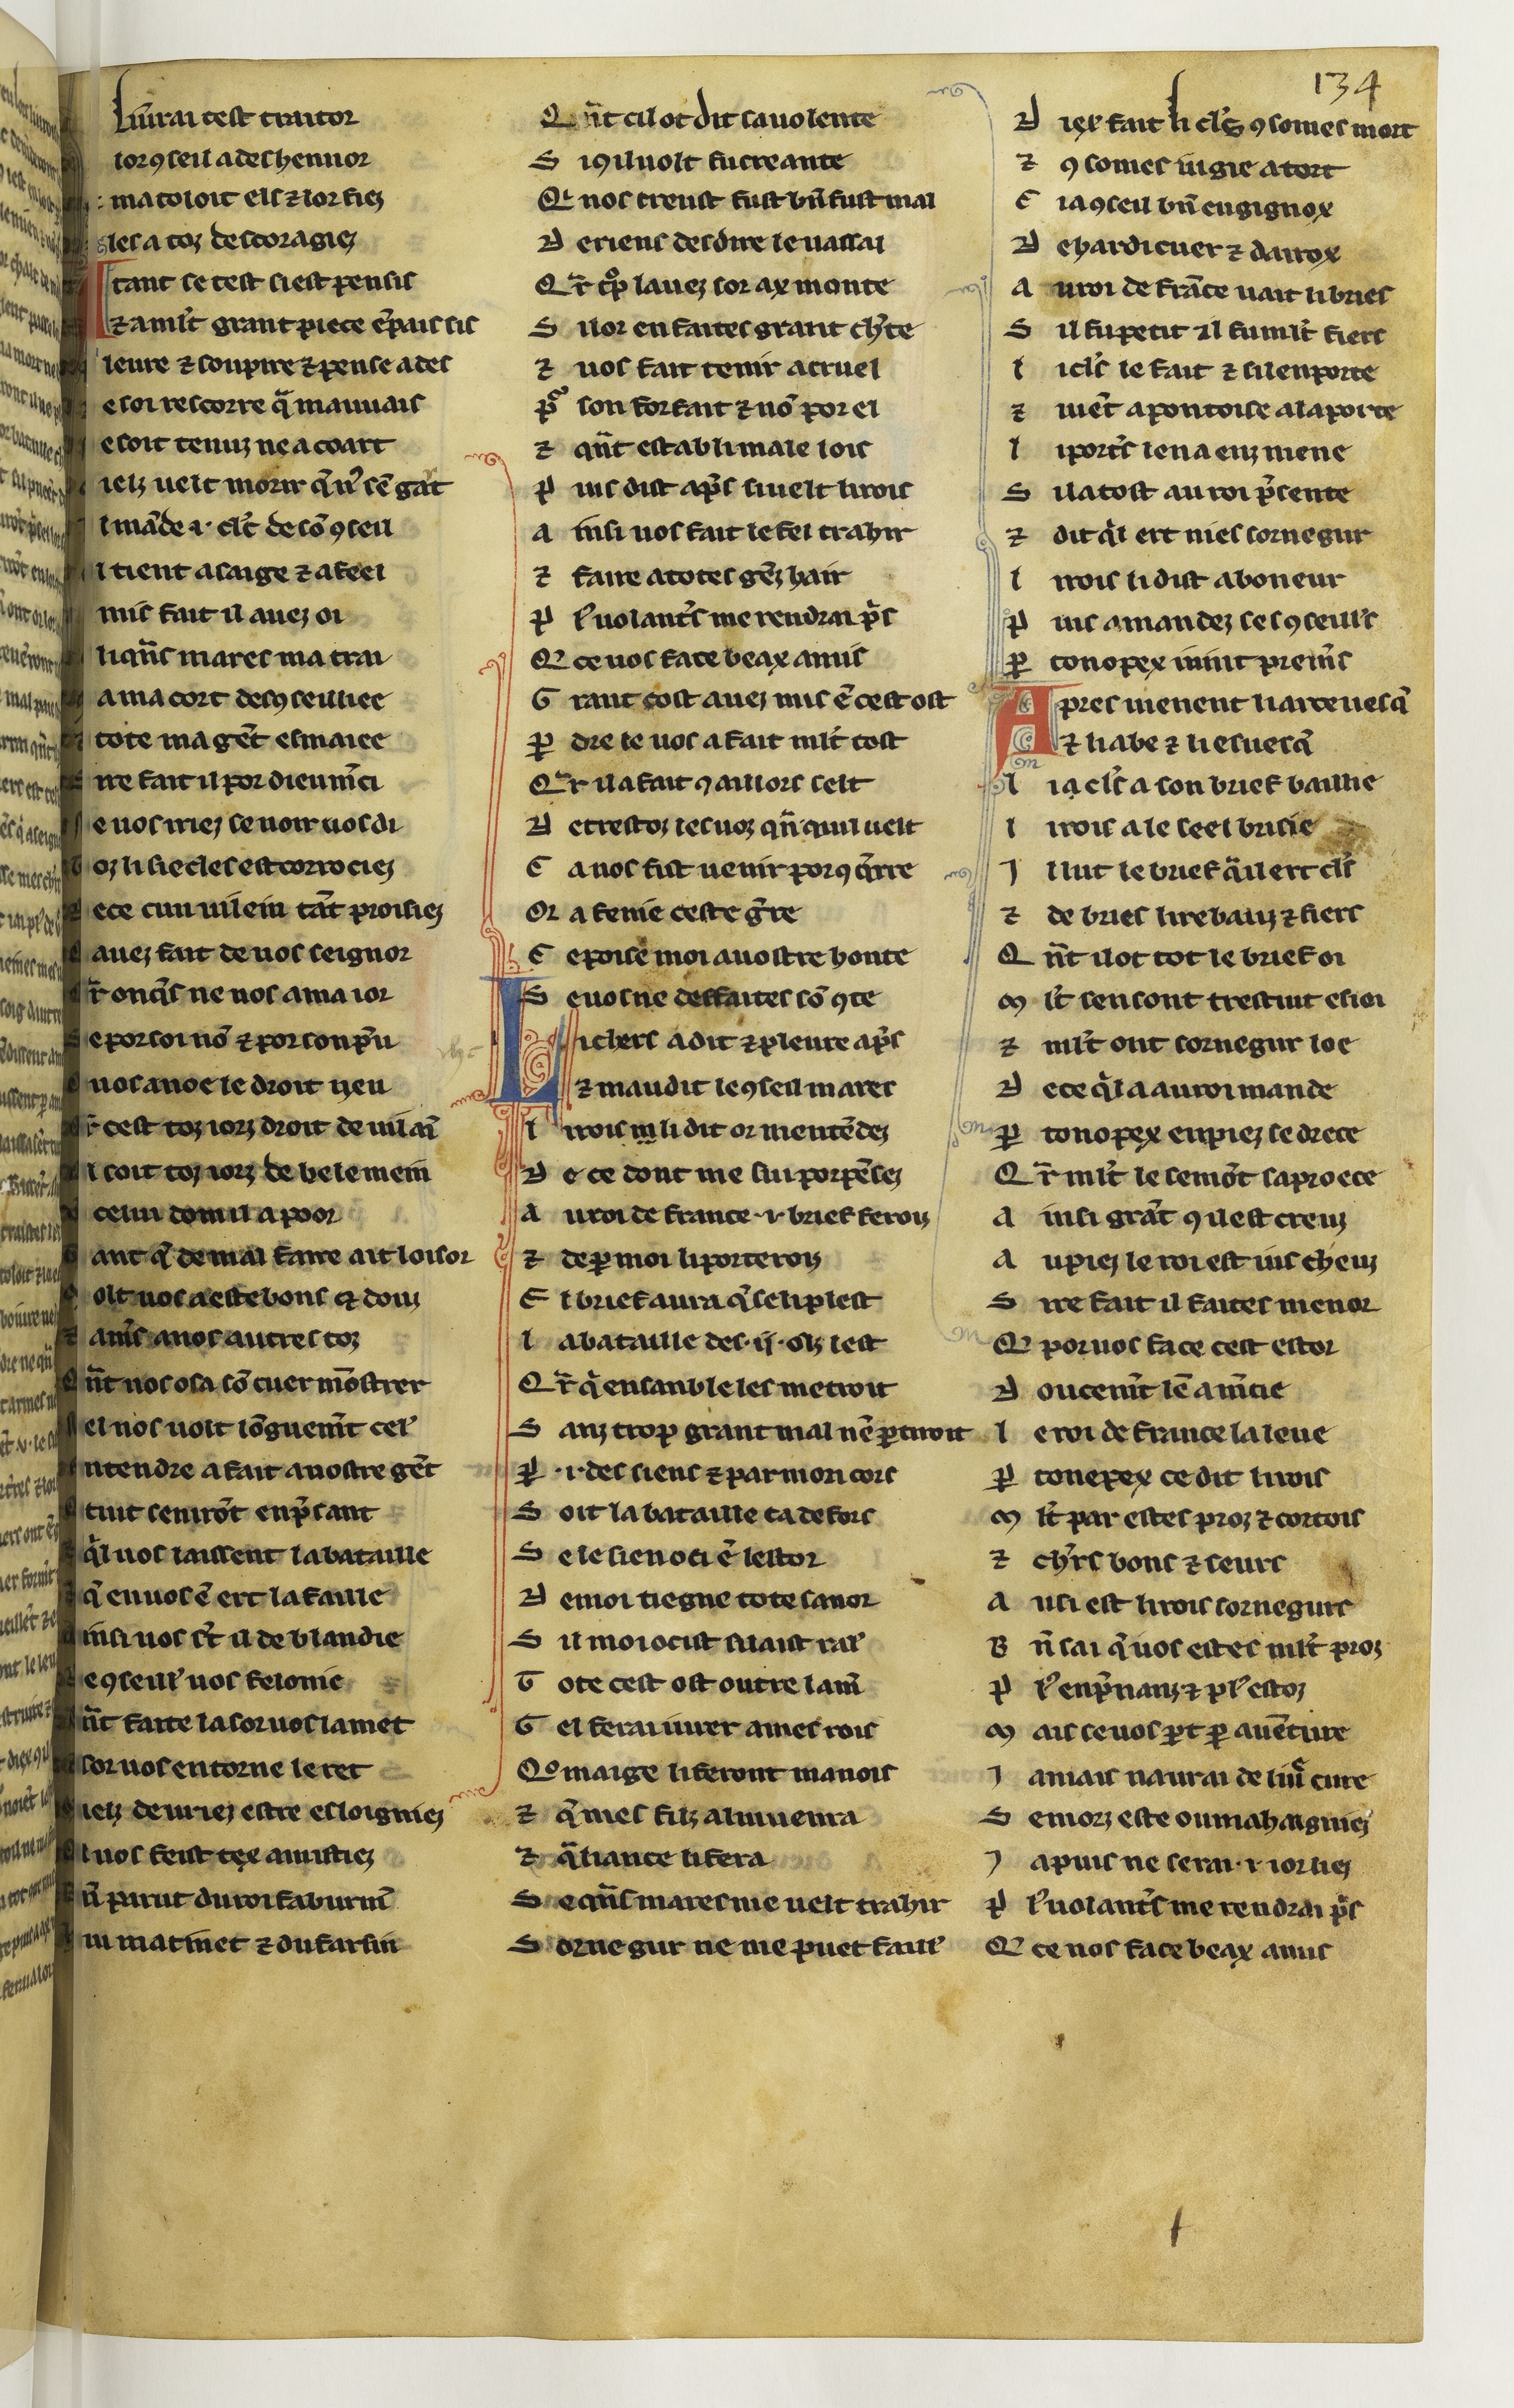 134
Liurrai cest traitor
ior ꝯseil a deshennor
ma toloit els ⁊ lor fiez
les a toz descoragiez
tant se test si est pensis
⁊ a ml̃t grant piece ẽpais sis
leure ⁊ soupire ⁊ pense ades
e soi rescorre q̃ mauuais
e soit tenuz ne a coart
ielz uelt morir
l mãde .i. clẽ de sõ ꝯseil
l tient a saige ⁊ a feel
mis fait il auez oi
li q̃ns mares ma trai
a ma cort desꝯseilliee
tote ma gẽt esmaiee
ire fait il por dieu m̃ci
e uos iriez se uoir uos di
oz li siecles est corrociez
ece cun uilein tãt proisiez
auez fait de uos seignor
r̃ onq̃s ne nos ama ior
e por soi nõ ⁊ por son pru
uos anoe le droit ijeu
r̃ cest toz iorz droit de uilaĩ
l soit toz iorz de bele mein
celui dom il a poor
ant q̃ de mal faire ait loisor
olt uos a este bons ⁊ douz
am̃s a nos autres toz
ñt nos osa sõ cuer mõstrer
el nos uolt lõguem̃t cel'
ntendre a fait a uostre gẽt
tuit senirõt enp̃sant
q̃l uos laissent la bataille
q̃ en uos ẽ ert la faille
insi uos s̃t il de blandie
e ꝯseull' uos felonie
ñt faite la sor uos lamet
sor uos en torne le ret
ielz deuriez estre esloigniez
l uos feist tex amistiez
ñ parut du roi faburũ
iu matinet ⁊ du farsin
Q ñt cil ot dit sa uolente
S i ꝯ il uolt fu creante
Q̃ nos creust fust bñ fust mal
D e riens desdire le uassal
Q r̃ t̃p lauez sor ax monte
S i lor en faites grant ch̃te
⁊ uos fait tenir a cruel
p̃ son forfait ⁊ nõ por el
⁊ qñt establi male lois
P uis dist ap̃s si uelt li rois
A insi uos fait le fel trahir
⁊ faire a totes gẽz hair
P l' uolant's me rendrai p̃s
Q ce uos face beax amis
G rant cost auez mis ẽ cest ost
P dre le uos a fait ml̃t tost
Q r il a fait ꝯ aillors selt
D e trestoz les uoz qñ quil uelt
C a nos fist uenir por ꝯq̃rre
Or a fenie ceste g̃re
C e poise moi a uostre honte
S e uos ne desfaites sõ ꝯte
L ichers a dit ⁊ pleure ap̃s
⁊ maudit le ꝯseil mares
L i rois li dit or mentẽdez
D e ce dont me sui porpẽsez
A u roi de france .i. brief feroiz
⁊ de p̲ moi li porteroiz
E l brief aura q̃ se li plest
L a bataille des .ij. oz lest
Q r̃ q̃ ensanble les metroit
S anz trop grant mal nẽ p̲tiroit
P .i. des siens ⁊ par mon cors
S oit la bataille ca defors
S e le sien oci ẽ lestor
D e moi tiegne tote sanor
S il moi ocist si laist ral'
T ote cest ost outre la m̃
G el ferai iurer a mes rois
Qo maige li feront manois
⁊ q̃ mes filz a lui uenra
⁊ q̃ liance li fera
S e q̃ns mares me uelt trahir
S ornegur ne me puet faill'
D iex fait li cl's ꝯ somes mort
⁊ ꝯ somes iugie a tort
C i a ꝯseil bñ engignox
D e hardi cuer ⁊ dairox
A u roi de frãce uait li bries
S il fu petit il fu ml̃t fiers
L i cl's le fait ⁊ si len porte
⁊ uiẽt a pontoise a la porte
L i port's len a enz mene
S i la tost au roi p̃sente
⁊ dit q̃l ert niés sornegur
L i rois li dist a boneur
P uis a mandez ses ꝯseull's
P̲ tonopex i uint prem̃s
A pres uienent li arceuesq̃
⁊ li abe ⁊ li esuesq̃
L ia cl's a son brief baillie
L i rois a le seel brisie
I l lut le brief q̃ il ert cl's
⁊ de bries lire bauz ⁊ fiers
Q ñt il ot tot le brief oi
M l̃t sen sont trestuit esioi
⁊ ml̃t ont sornegur loe
D e ce q̃l a au roi mande
P̲ tonopex en piez se drece
Q r̃ ml̃t le semõt sa proece
A insi grãt ꝯ il est creuz
A u piez le roi est ius cheuz
S ire fait il faites menor
Q por uos face cest estor
D oucem̃t lẽ a m̃cie
L e roi de france la leue
P̲ tonepex ce dit li rois
M l̃t par estes proz ⁊ cortois
⁊ ch'rs bons ⁊ seurs
A usi est li rois sornegurs
B ñ sai q̃ uos estes ml̃t proz
P l' enp̃nanz ⁊ pl' estoz
M ais se uos p̲t p̲ auẽture
I amais naurai de liu̾ cure
S e morz este ou mahaigniez
I a puis ne serai .i. ior liez
P l' uolant's me rendrai p̃s
Q ce uos face beax amis